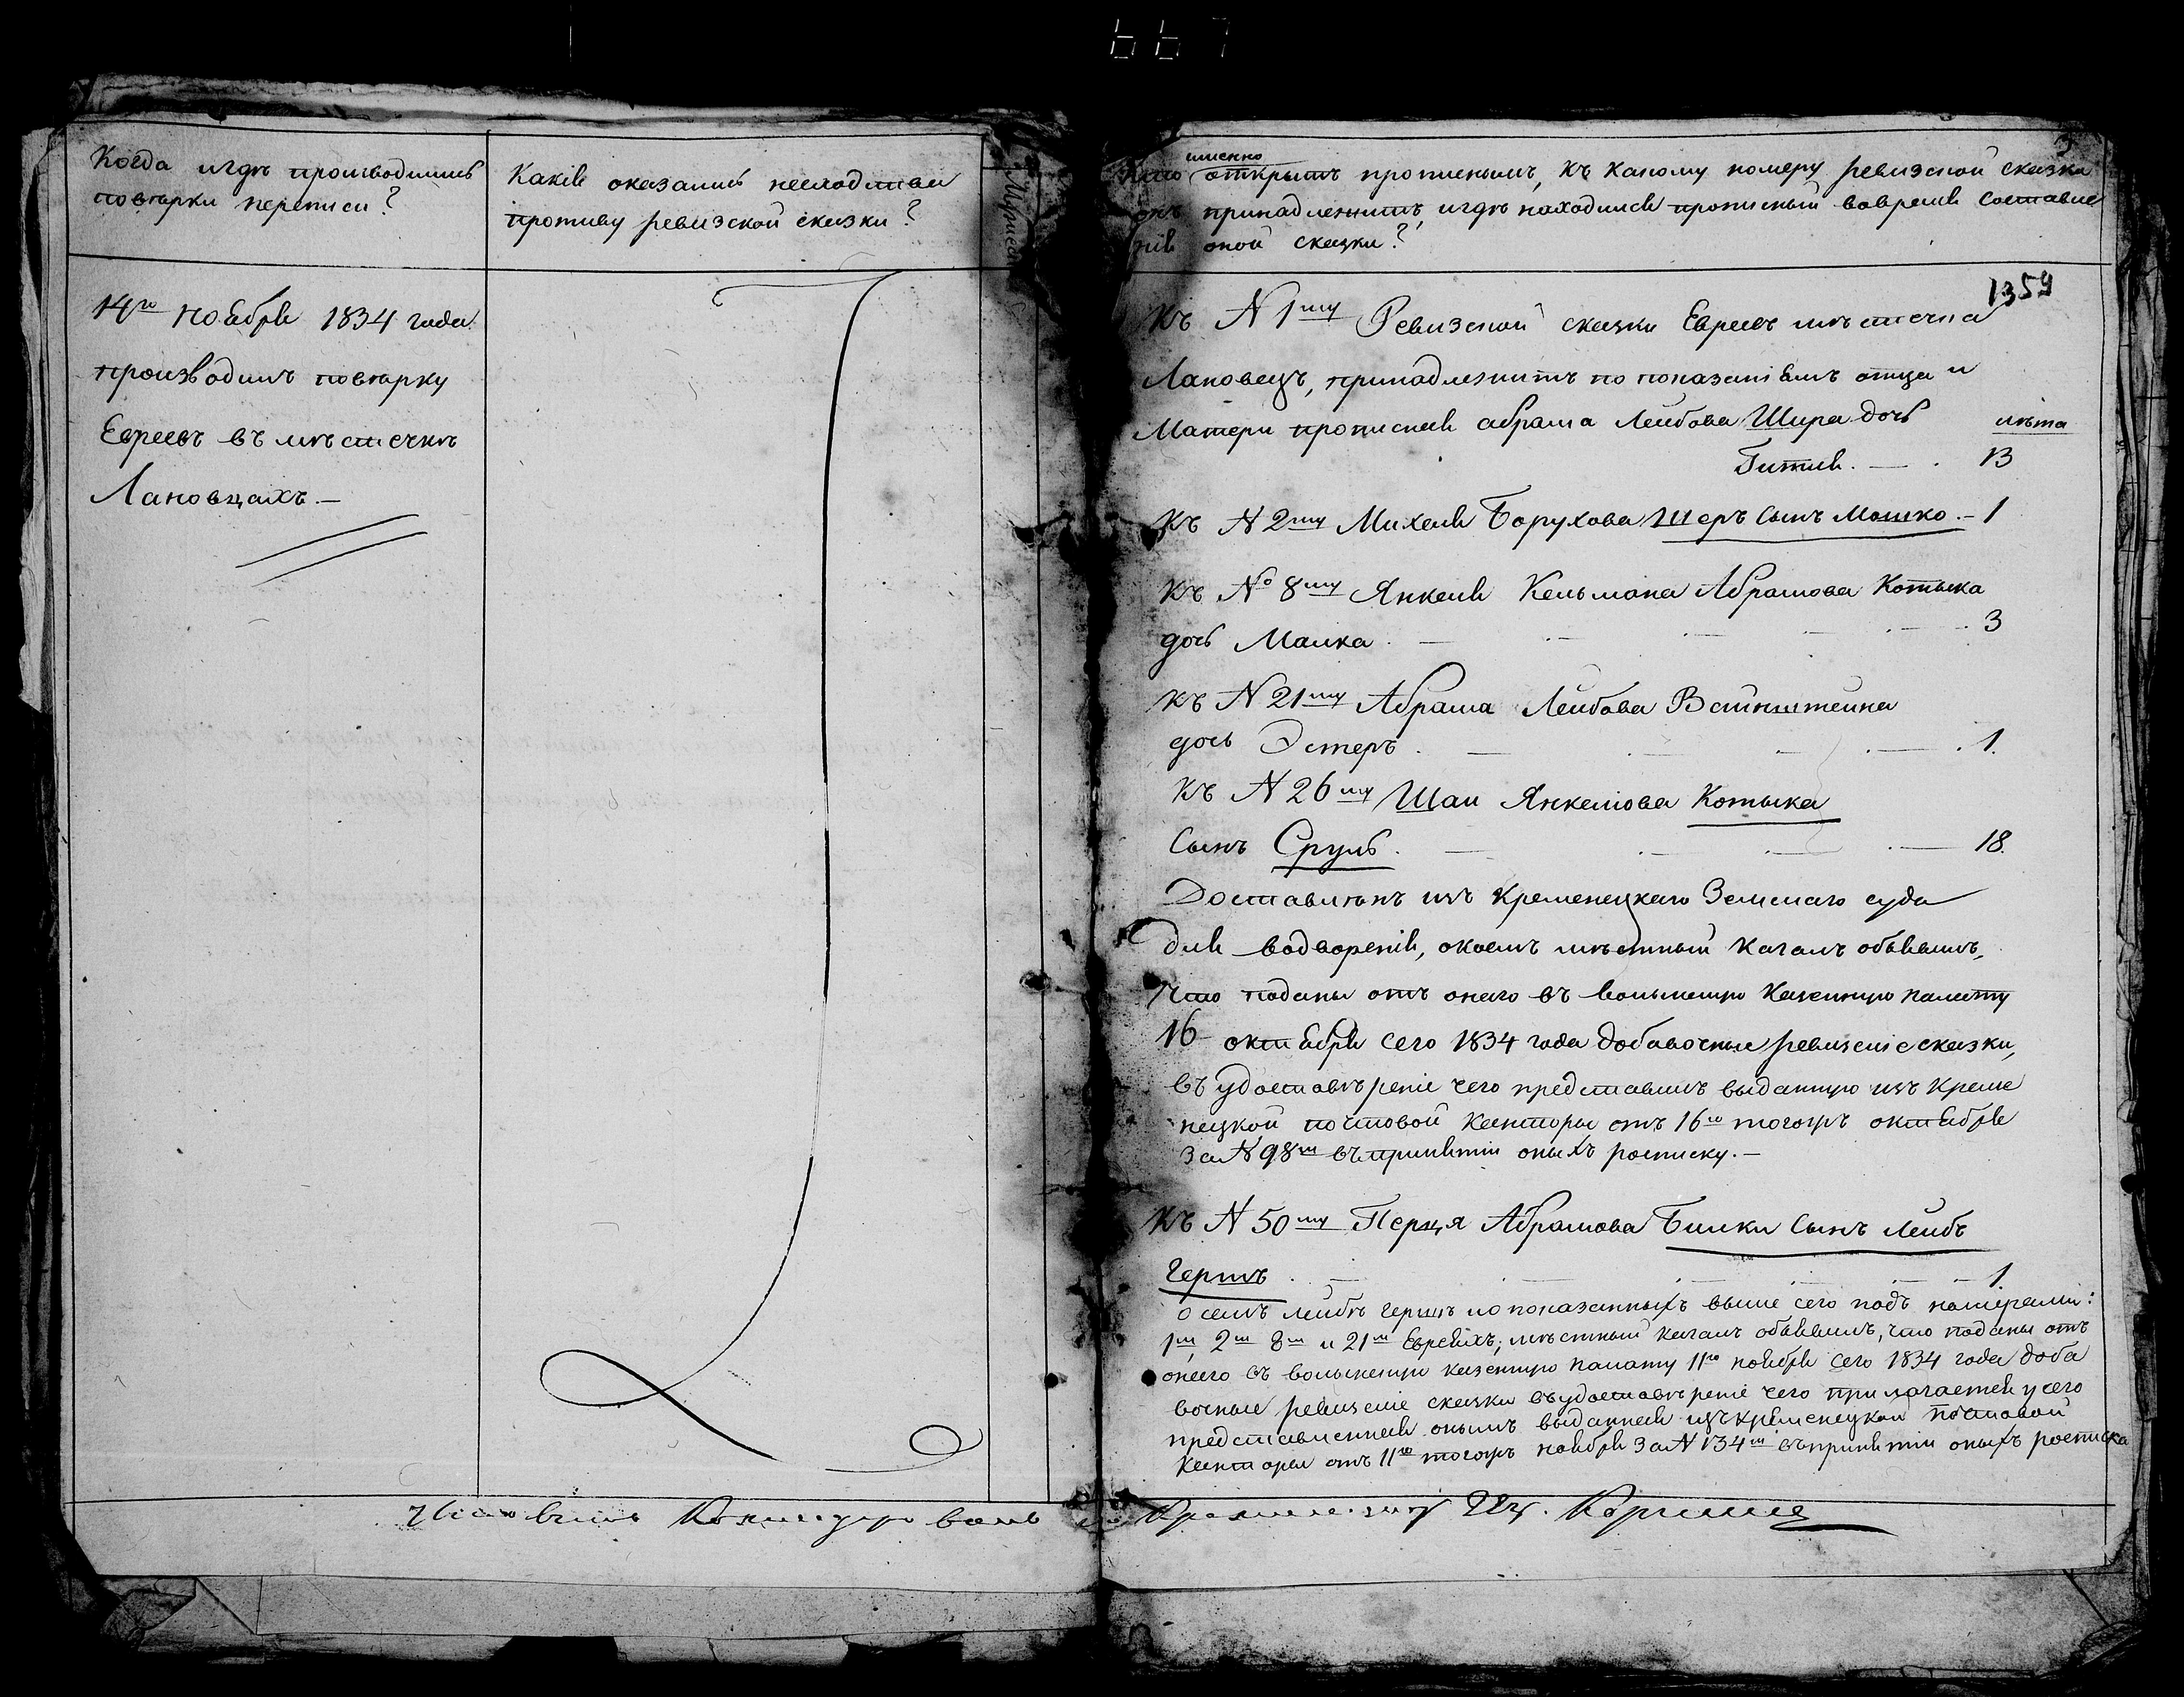 667
Когда игдѣ производились
повѣрки переписи?
Какія оказались несходствы
противу ревизской сказки?
14го Ноября 1834 года
производилъ повѣрку
Евреевъ въ мѣстечкѣ
Лановцахъ.—
3
именно
Кто открытъ прописнымъ, къ какому номеру ревизской сказки
онъ принадлежитъ, игдѣ находился прописный вовремя составле
нія оной сказки?
1359
Къ N 1му Ревизской сказки Евреевъ мѣстечка
Лановецъ, принадлежитъ по показаніямъ отца и
Матери прописная абрама Лейбова Шира дочь
лѣта
Гитля. — . 13
Къ N 2му Михеля Борухова Шеръ сынъ Мошко.— 1
Къ No 8му Янкеля Кельмана Абрамова Котыка
дочь Малка . — 3
Къ N 21му Абрама Лейбова Вайнштейна
дочь Эстеръ . — 1.
Къ N 26му Шаи Янкелова Котыка
Сынъ Сруль . — 18.
Доставленъ изъ Кременецкаго Земскаго суда
для водворенія, окоемъ мѣстный Кагалъ объявилъ,
Что поданы отъ онаго въ волынскую Казенную палату
16 октября сего 1834 года добавочные ревизскіе сказки,
въ удостовѣреніе чего представилъ выданную изъ Креме
нецкой почтовой Канторы отъ 16го тогожъ октября
За N 98м въпринятіи оныхъ росписку.—
Къ N 50му Перця Абрамова Билки сынъ Лейбъ
Гершъ . — 1.
о семъ Лейбѣ Гершѣ и о показанныхъ выше сего подъ номерами:
1м, 2м 8м и 21м Евреяхъ; мѣстный кагалъ объявилъ, что поданы отъ
онаго въ волынскую казенную палату 11го ноября сего 1834 года доба
вочные ревизскіе сказки въудостовѣреніе чего прилагается у сего
представленная онымъ выданная изъкременецкой почтовой
Канторы отъ 11го тогожъ ноября За N 134м въпринятіи оныхъ росписка